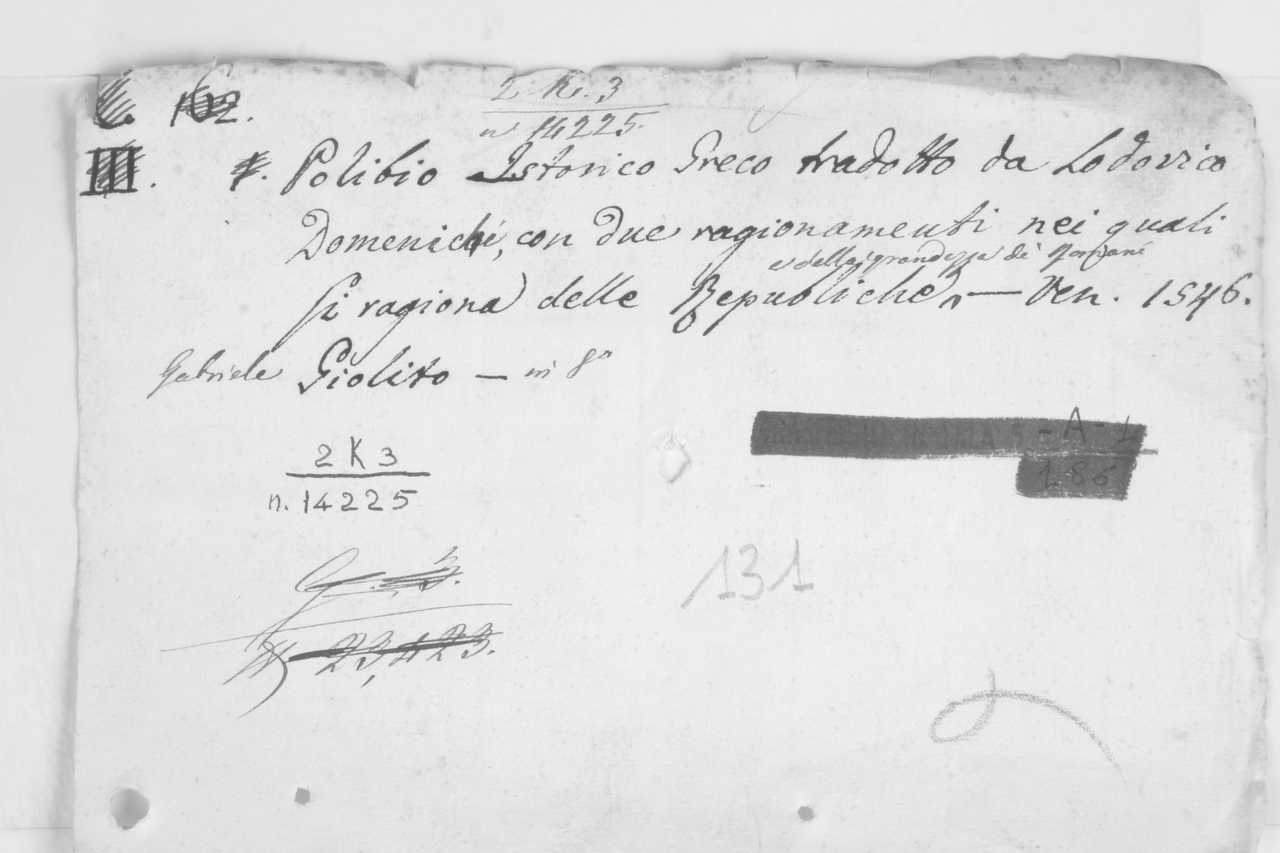 162.
2 K. 3
n 14225.
III. Polibio Istorico Greco tradotto da Lodovico
Domenichi, con due ragionamenti nei quali
e della grandezza de' Romani
si ragiona delle Republiche, — Ven. 1546.
Gabriele Giolito — in 8°
- A - 1
186
2 K 3
n. 14225
131
23,423.